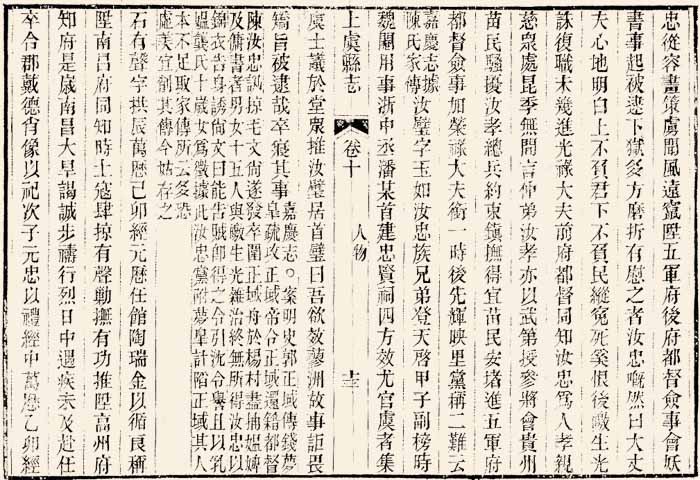 忠從容畫策虜聞風遠竄陞五軍府後府都督僉事會妖
書事起被逮下獄多方磨折有慰之者汝忠嘅然曰大丈
夫心地明白上不負君下不負民縱寃死奚恨後皦生光
誅復職未幾進光祿大夫前府都督同知汝忠爲人孝親
慈衆處昆季無閒言仲弟汝孝亦以武第授參將會貴州
苗民騷擾汝孝總兵約束鎭撫得宜苗民安堵進五軍府
都督僉事加榮祿大夫銜一時後先輝映里黨稱二難云
嘉慶志據
陳氏家傳
汝璧字玉如汝忠族兄弟登天啓甲子副榜時
魏閹用事浙中丞潘某首建忠賢祠四方效尤官虞者集
上虞縣志
卷十
人物
虞士議於堂衆推汝璧居首璧曰吾欲效蓼洲故事詎畏
矯旨被逮哉卒寢其事
嘉慶志。案明史郭正域傳錢夢
皋疏攻正域帝令正域還籍都督
陳汝忠訊掠毛文尙遂發卒圍正域舟於楊村盡捕媼婢
及傭書者男女十五人與皦生光雜治終無所得汝忠以
錦衣告身誘尙文曰能告賊卽得之令引沈令譽且以乳
媼龔氏十歲女爲徵據此汝忠黨附夢皋計陷正域其人
本不足取家傳所云多恐
虛美宜削其傳今姑存之
石有聲字拱辰萬厯己卯經元厯任館陶瑞金以循良稱
陞南昌府同知時土寇肆掠有聲勦撫有功推陞高州府
知府是歲南昌大旱謁誠步禱行烈日中遇疾未及赴任
卒合郡戴德肖像以祀次子元忠以禮經中萬厯乙卯經